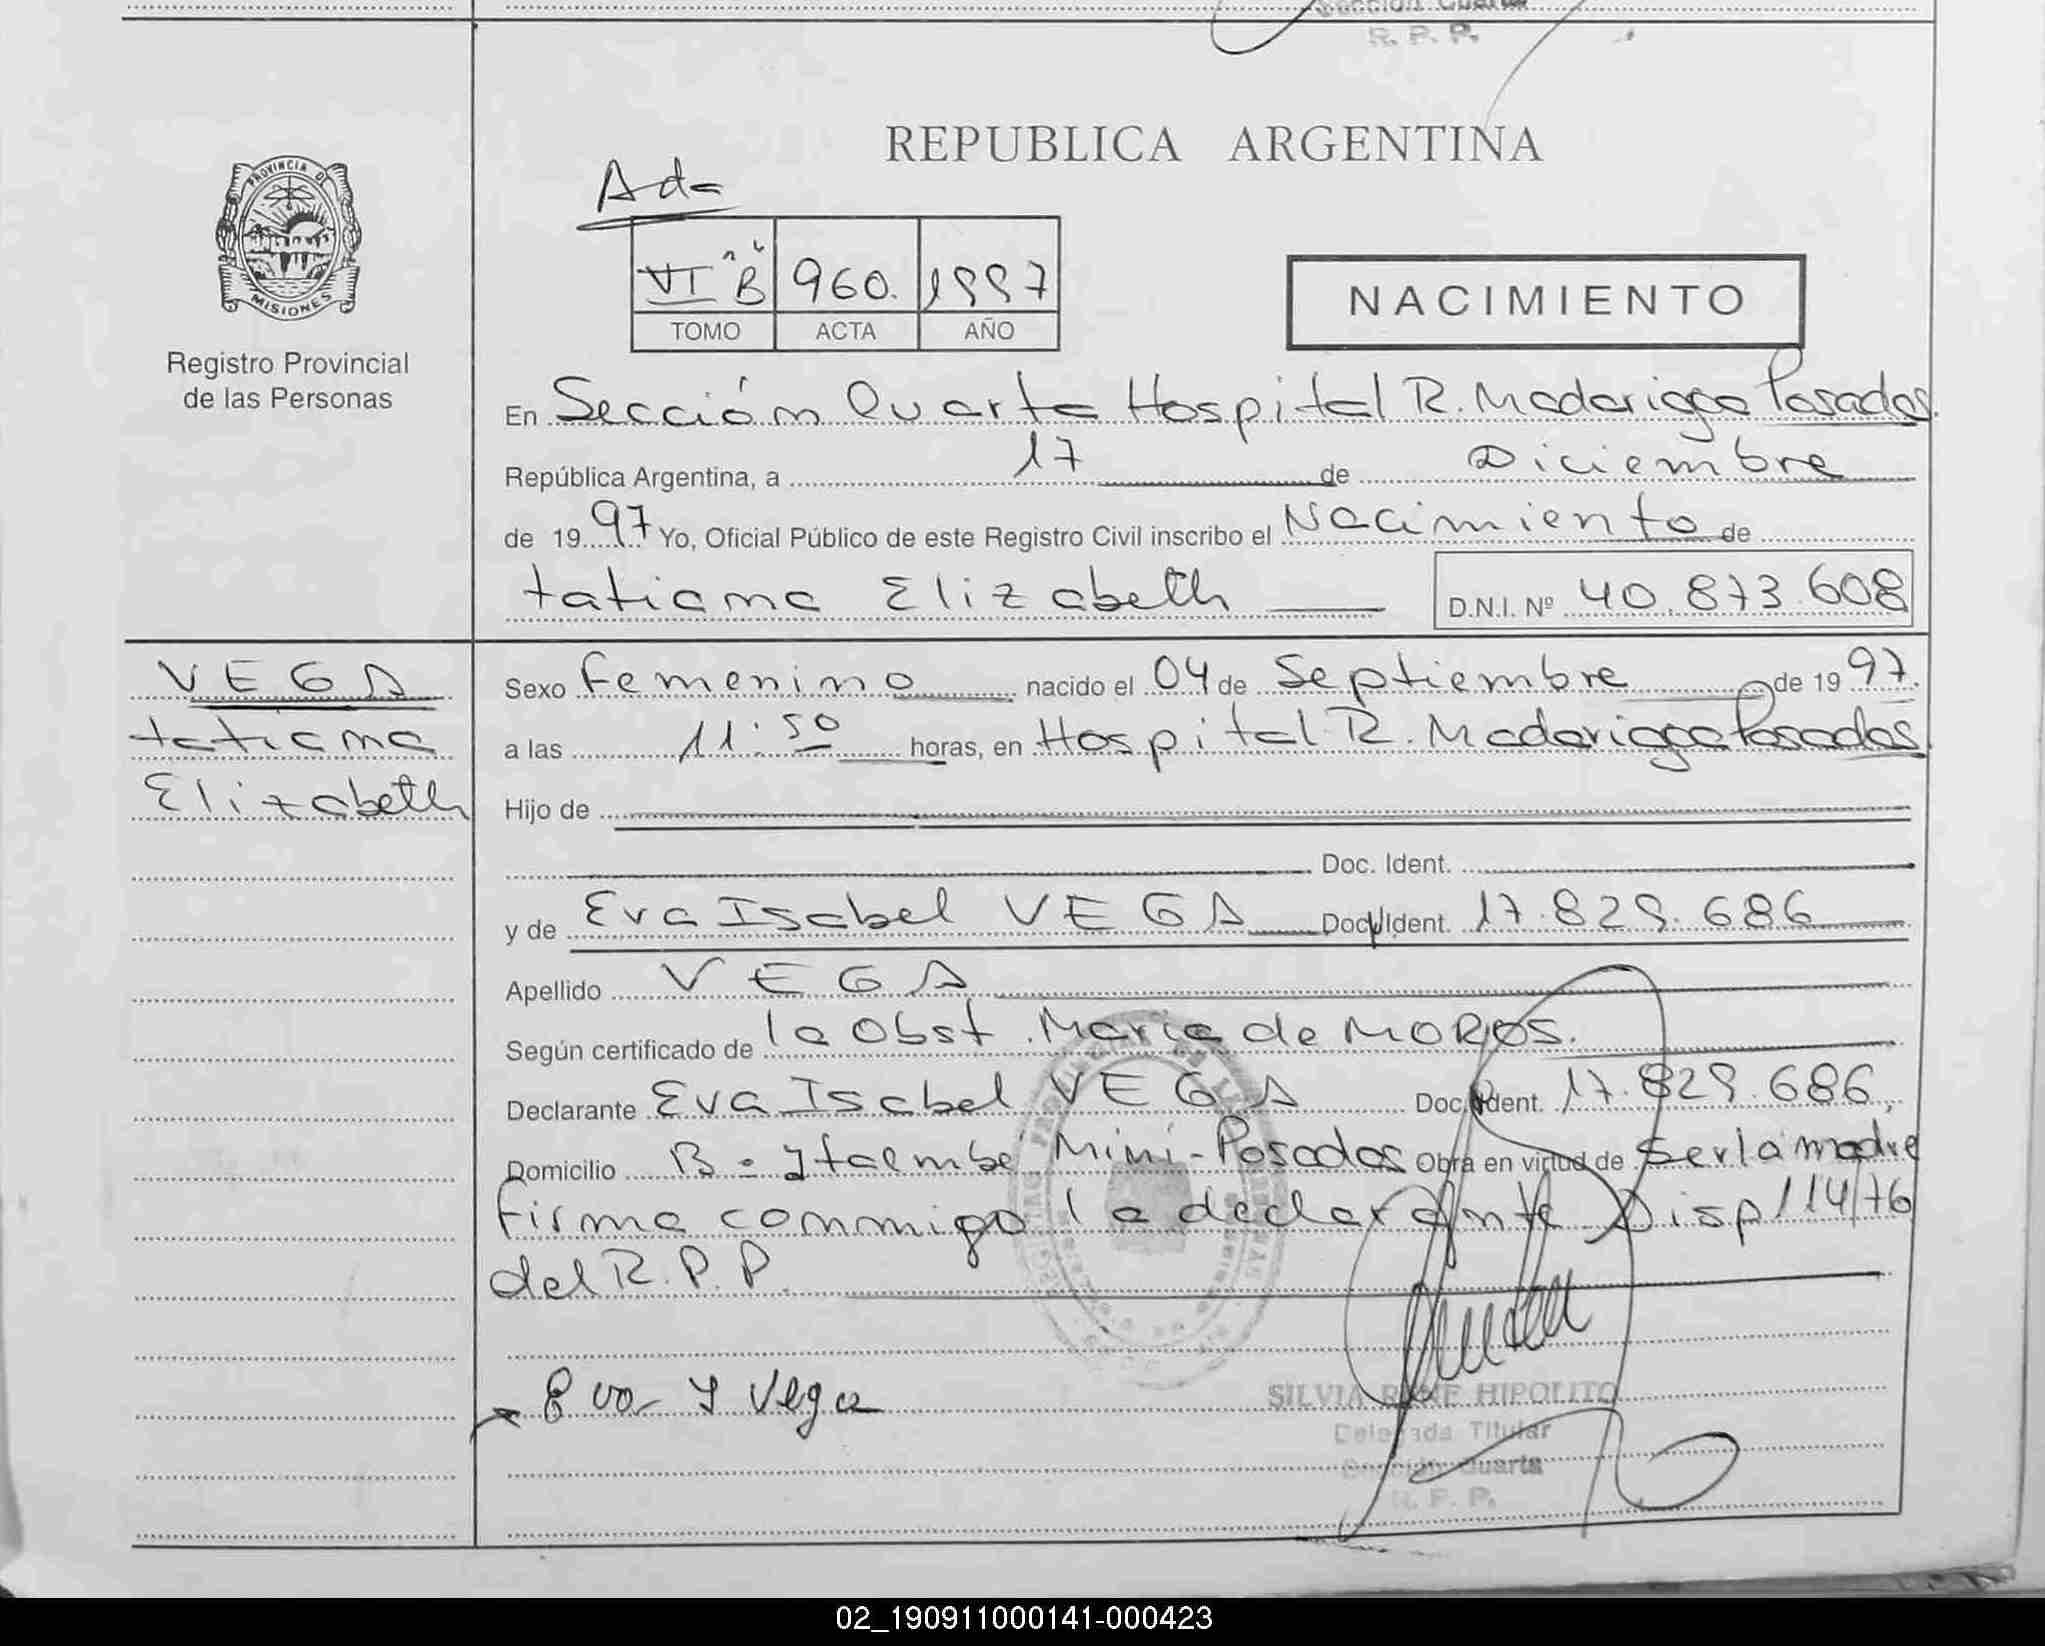 Sección Cuarta
R. P. P.
REPUBLICA ARGENTINA
PROVINCIA DE
MISIONES
Registro Provincial
de las Personas
VI "B" 960. 1997
TOMO ACTA AÑO
NACIMIENTO
En Sección Quarta Hospital R. Madariaga Posadas.
República Argentina, a 17 de Diciembre
de 1997 Yo, Oficial Público de este Registro Civil inscribo el Nacimiento de
tatiana Elizabeth D.N.I. Nº 40.873.608
VEGA
tatiana
Elizabeth
Sexo femenino nacido el 04 de Septiembre de 1997.
a las 11:50 horas, en Hospital R. Madariaga Posadas
Hijo de
Doc. Ident.
y de Eva Isabel VEGA Doc. Ident. 17.829.686
Apellido VEGA
Según certificado de la Obst. Maria de MOROS.
Declarante Eva Isabel VEGA Doc. Ident. 17.829.686,
Domicilio B= Ytaembé Mini-Posadas Obra en virtud de Ser la madre
firma conmigo la declarante Disp 114/76
del R.P.P.
Eva Y Vega
SILVIA RENE HIPOLITO
Delegada Titular
Sección Cuarta
R. P. P.
02_190911000141-000423